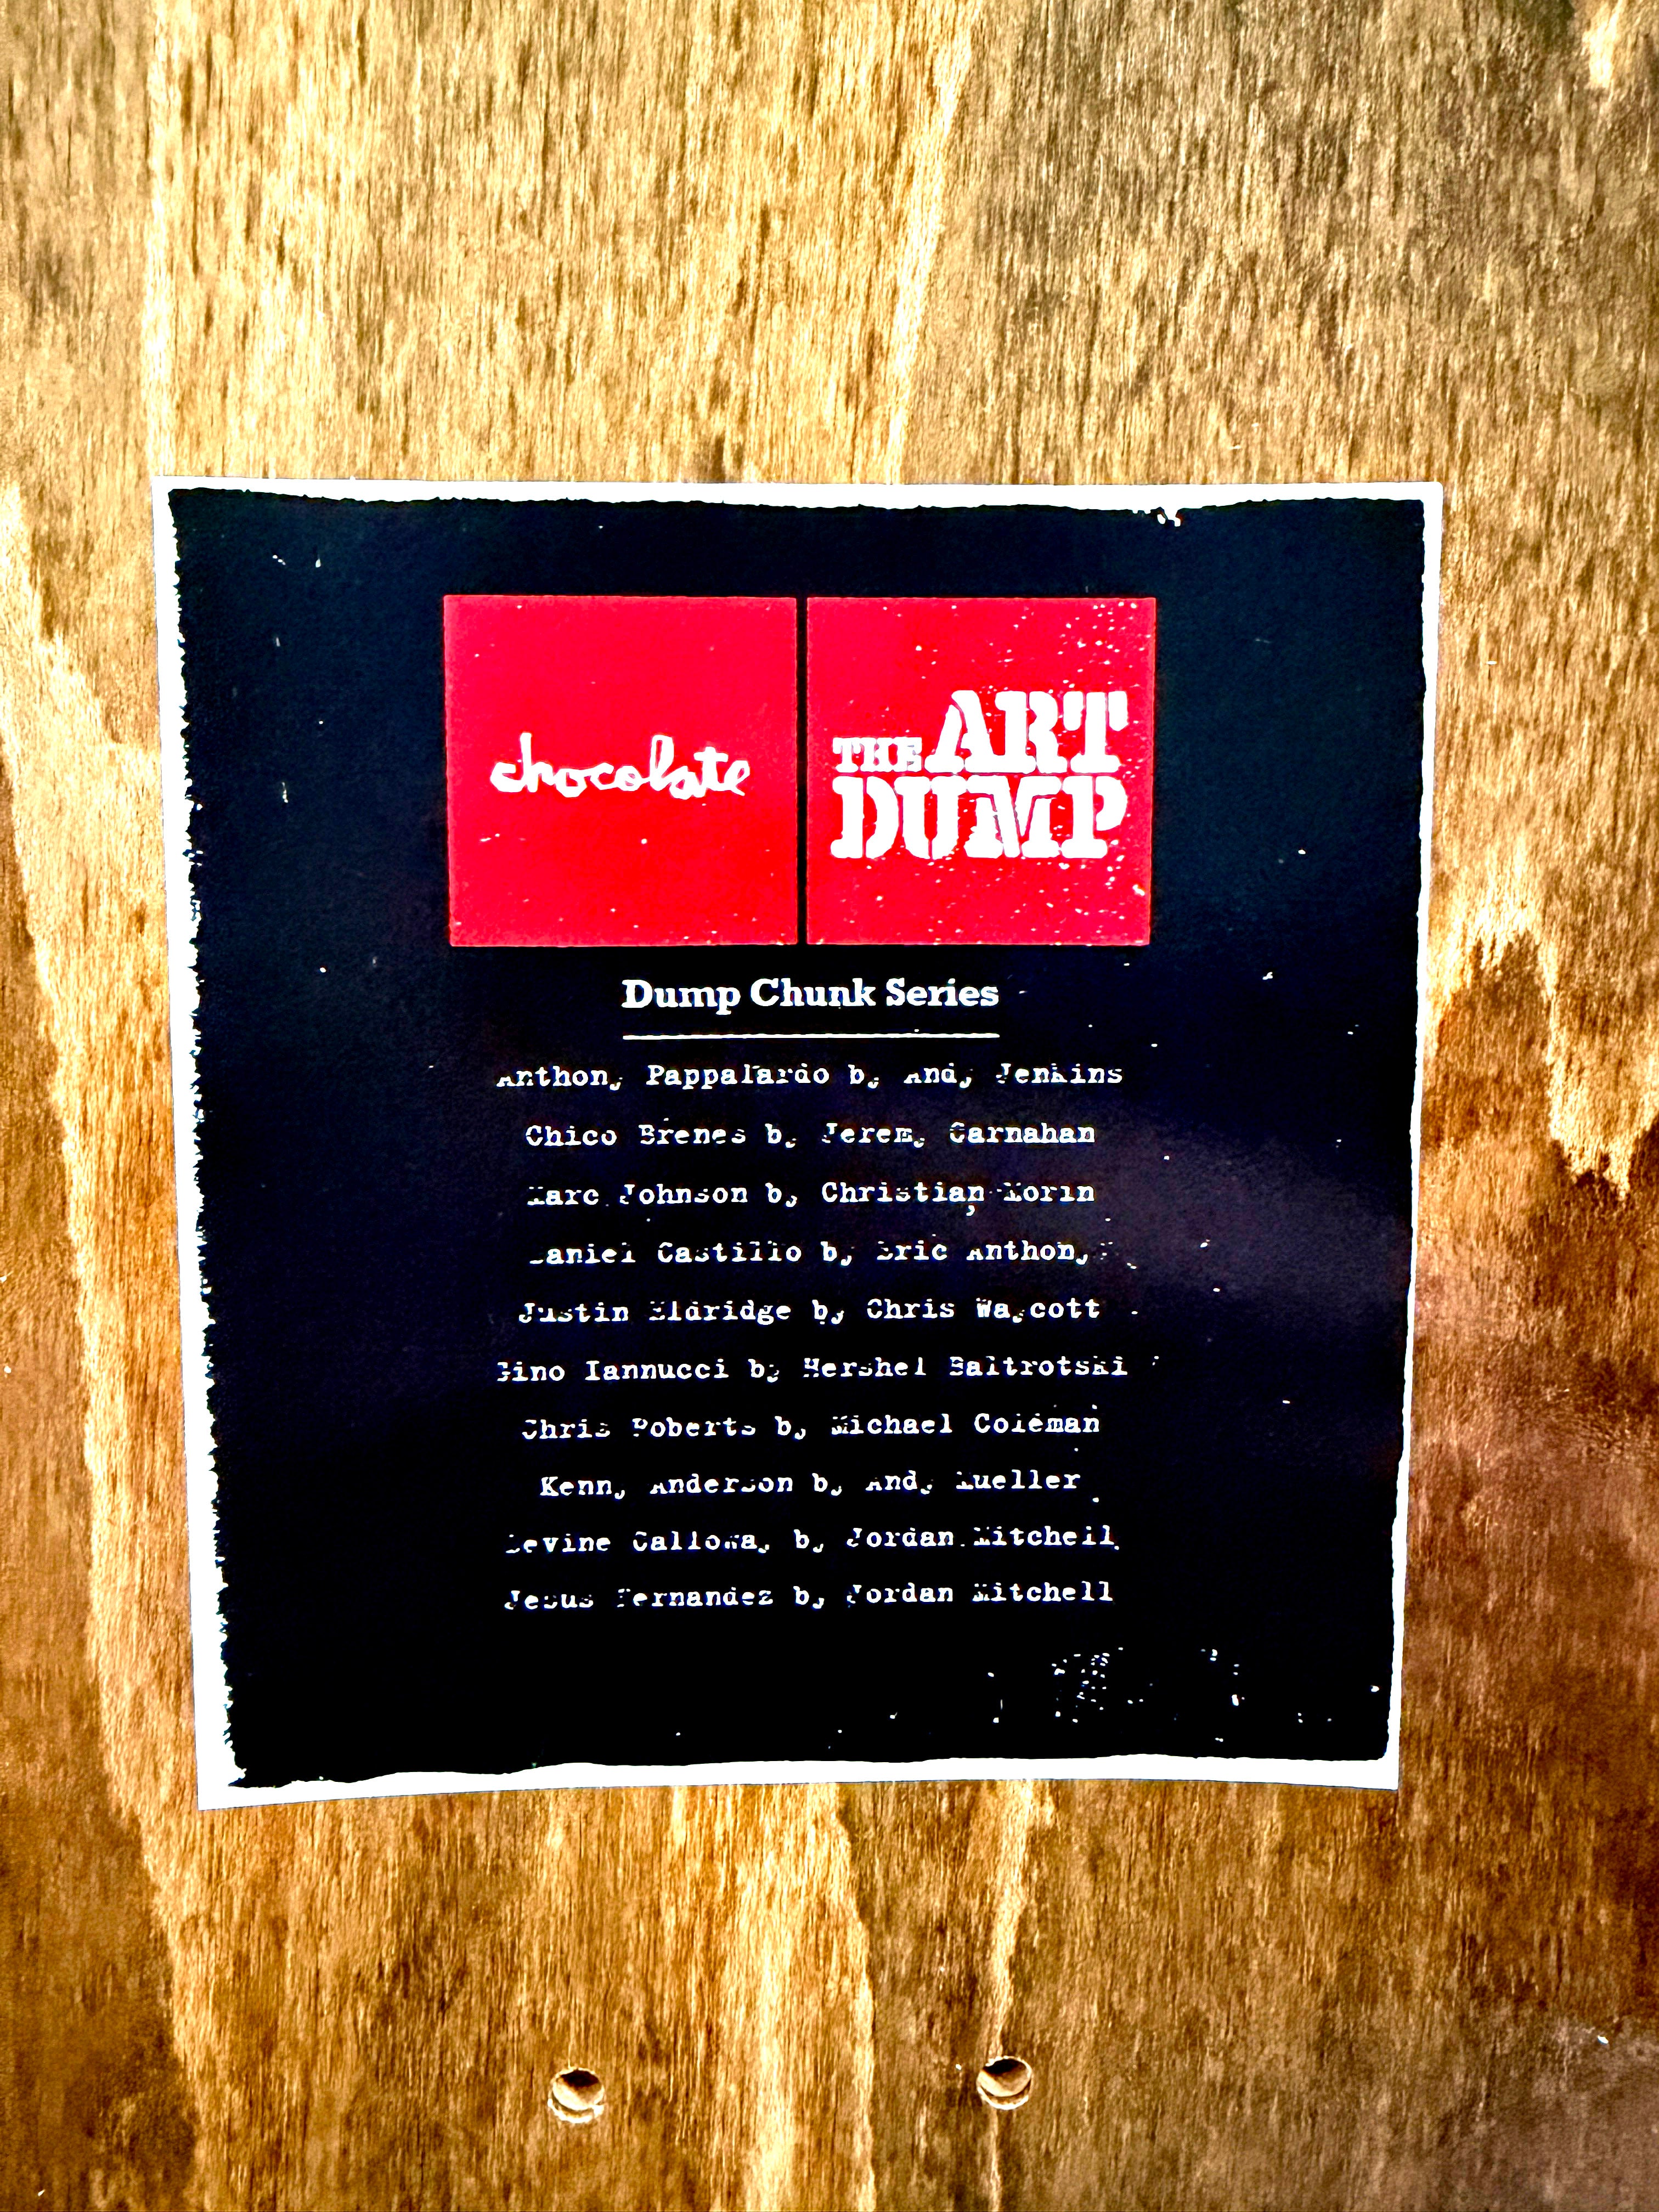 chocolate
THE ART
DUMP
Dump Chunk Series
Anthony Pappalardo by Andy Jenkins
Chico Brenes by Jeremy Carnahan
Marc Johnson by Christian Morin
Daniel Castillo by Eric Anthony
Justin Eldridge by Chris Waycott
Gino Iannucci by Hershel Baltrotski
Chris Roberts by Michael Coleman
Kenny Anderson by Andy Mueller
Devine Calloway by Jordan Mitchell
Jesus Fernandez by Jordan Mitchell